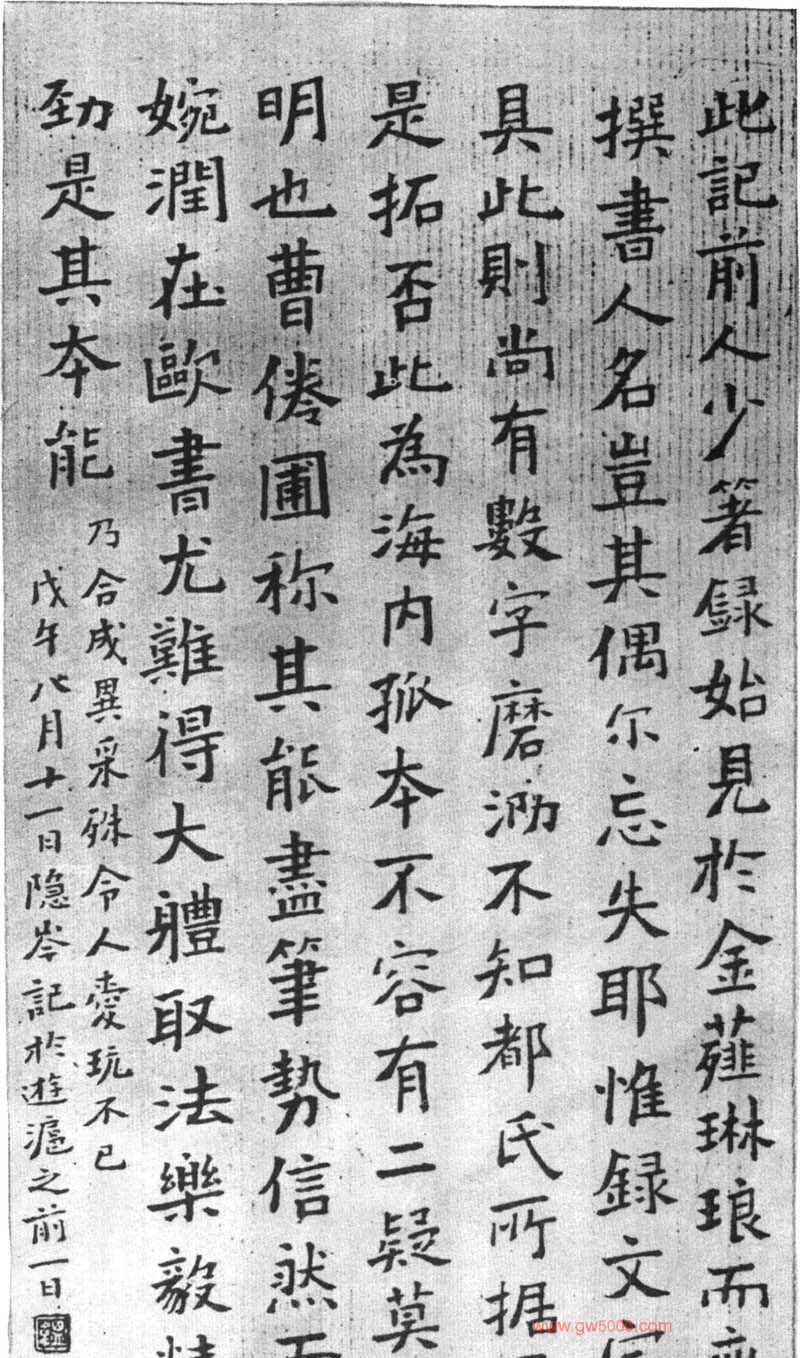 此記前人少著録始見於金薤琳琅而
撰書人名豈其偶尔忘失耶惟録文
具此則尚有數字磨泐不知都氏所据
是拓否此為海内孤本不容有二疑莫
明也曹倦圃称其能盡筆勢信然而
婉潤在歐書尤難得大體取法樂毅
劲是其本能
乃合成異采殊令人愛玩不已
戊午八月十一日隐岑記於遊滬之前一日
www.gw500